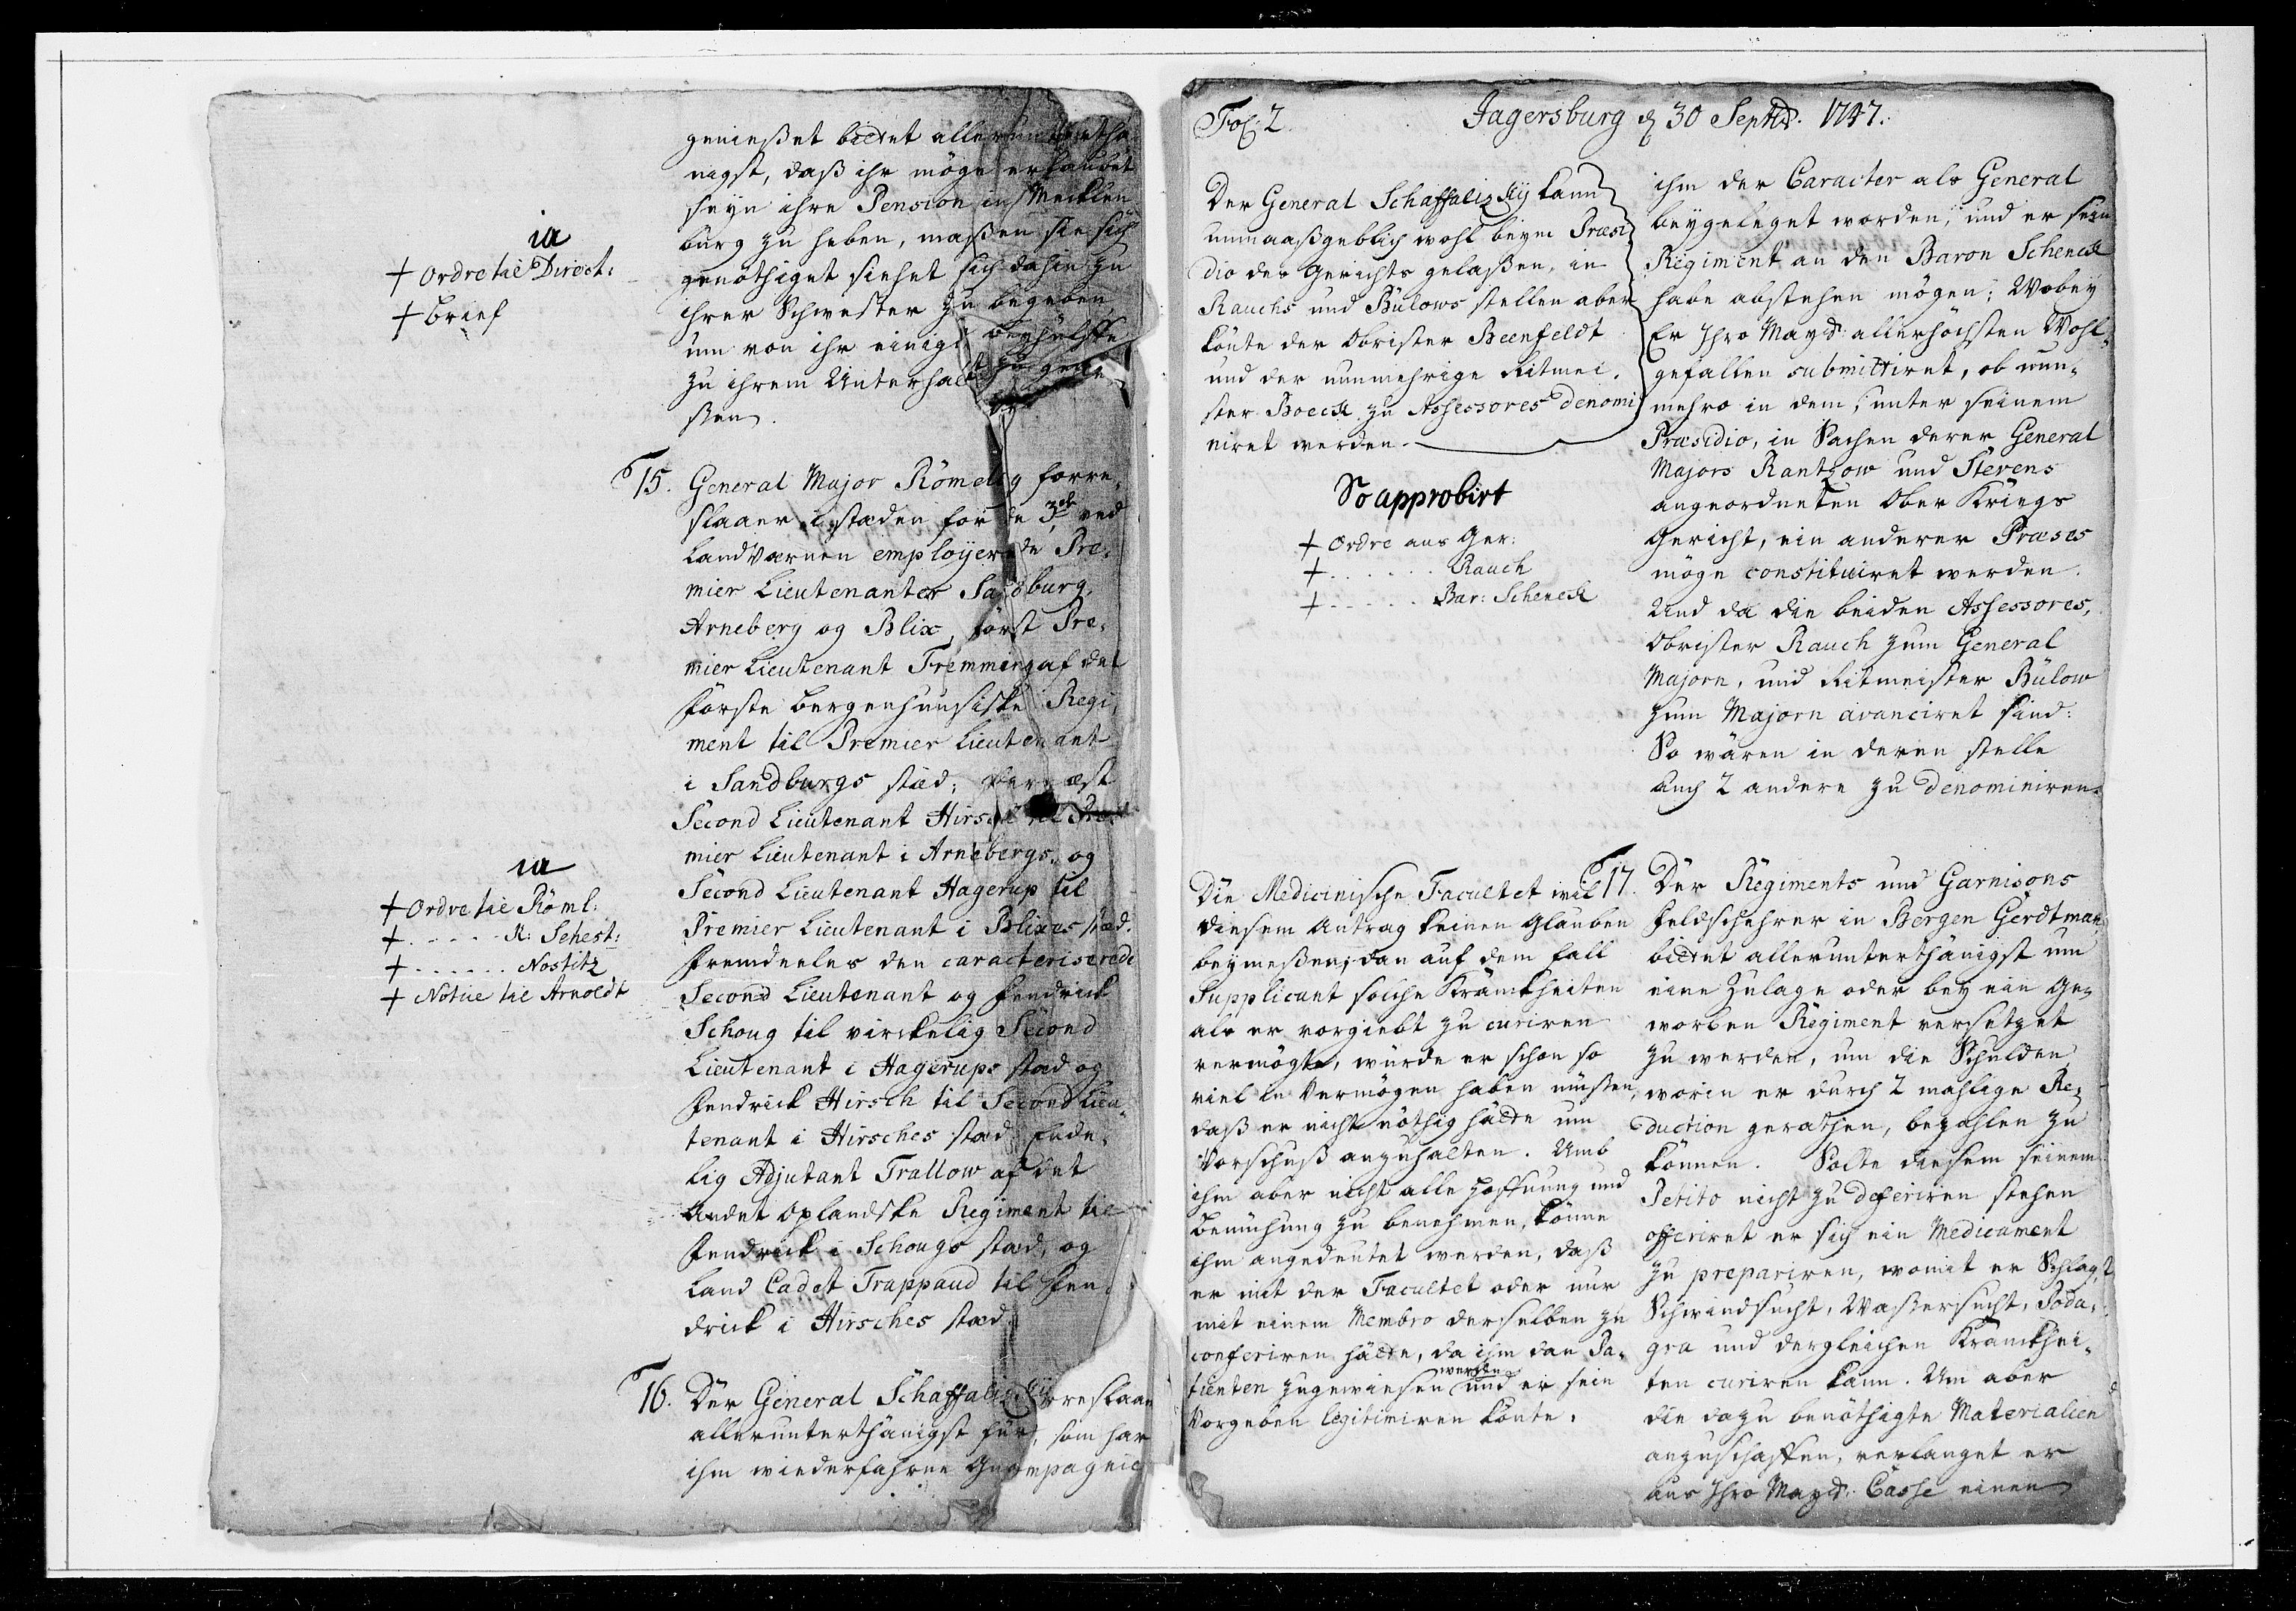 genießet bittet allerunterthä
nigst, daß ihr möge erlaubet
seyn ihre Pension in Mecklen
burg zu heben, maßen sie sich
genöthiget siehet sich dahin zu
ihrer Schwester zu begeben,
um von ihr einige beyhülffe
zu ihrem Unterhalt zu genie
ßen.
ia
+ Ordre til Direct:
+ brief
15. General Major Römeling forre,
slaaer, i stæden for de 3de ved
Landværnen employerede Pre,
mier Lieutenanter Sandburg,
Arneberg og Blix, först Pre,
mier Lieutenant Fremming af det
förste bergenhuusiske Regi,
ment til Premier Lieutenant
i Sandburgs stæd; dernæst
Second Lieutenant Hirsch til Pre
mier Lieutenant i Arnebergs, og
Second Lieutenant Hagerup til
Premier Lieutenant i Blixes stæd.
fremdeeles den caracteriserede
Second Lieutenant og fendrick
Schoug til virckelig Second
Lieutenant i Hagerups stæd og
fendrick Hirsch til Second Lieu,
tenant i Hirsches stæd. Ende,
lig Adjutant Trallow af det
Andet oplandske Regiment til
fendrick i Schougs stæd, og
Land Cadet Trappaud til fen,
drick i Hirsches stæd.
ia
+ Ordre til Röml:
+ . . . . . R: Sehest:
+ . . . . . . Nostitz
+ Notice til Arnoldt
16. Der General Schaffalizky
allerunterthänigst für
ihm wiederfahrne
foreslaar
som har
ompagnie
Fol: 2.
Jagersburg d 30 Septbr. 1747.
Der General Schaffalizky kann
unmaaßgeblich wohl beym Præsi
dio des Gerichts gelaßen, in
Rauchs und Bülows stellen aber
könte der Obrister Beenfeldt
und der nunmehrige Ritmei,
ster Boeck zu Assessores denomi
niret werden.
So approbirt
+ Ordre ans Ger:
+ . . . . . . . Rauch
+ . . . . . . Bar: Schenck
ihm der Caracter als General
beygeleget worden, und er sein
Regiment an den Baron Schenck
habe abstehen mögen; Wobey
Er Ihro Mayt: allerhöchsten Wohl,
gefallen submittiret, ob nun,
mehro in dem, unter seinem
Præsidio, in Sachen derer General
Majors Rantzow und Stevens
angeordneten Ober Kriegs
Gericht, ein anderer Præses
möge constituiret werden.
Und da die beiden Assessores,
Obrister Rauch zum General
Majorn, und Ritmeister Bülow
zum Majorn avanciret sind:
So wären in deren stelle
auch 2 andere zu denominiren.
Die Medicinische Facultet wil
diesem Antrag keinen glauben
beymeßen; dan auf dem fall
Supplicant solche Kranckheiten
als er vorgiebt zu curiren
vermögte, würde er schon so
viel in Vermögen haben müßen,
daß er nicht nöthig hätte um
Vorschuß anzuhalten. Umb
ihm aber nicht alle Hoffnung und
bemühung zu benehmen, könne
ihm angedeutet werden, daß
er mit der Facultet oder nur
mit einem Membro derselben zu
conferiren hätte, da ihm dan Pa,
tienten zugewiesen werden und er sein
Vorgeben legitimiren könte.
17. Der Regiments und Garnisons
feldscherer in Bergen Gerdtman,
bittet allerunterthänigst um
eine Zulage oder bey ein Ge,
worben Regiment versetzet
zu werden, um die Schulden
worin er durch 2 mahlige Re,
duction gerathen, bezahlen zu
können. Solte diesem seinem
Petito nicht zu deferiren stehen
offeriret er sich ein Medicament
zu prepariren, womit er Schlag,
Schwindsucht, Waßersucht, Poda,
gra und dergleichen Kranckhei,
ten curiren kann. Um aber
die dazu benöthigte Materialien
anzuschaffen, verlanget er
aus Ihro Mayt: Casse einen